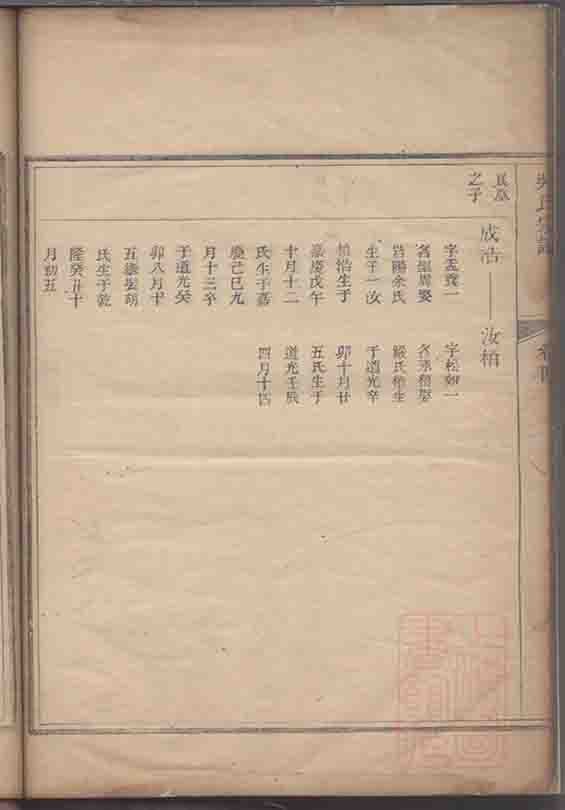 吳氏宗譜
之子
成浩
字孟養一
名國異娶
皆陽余氏
生子一汝
柏浩生于
嘉慶戊午
十月十二
氏生于嘉
慶己巳九
月十三卒
于道光癸
卯八月十
五歲娶胡
氏生于乾
隆癸丑十
月初五
汝柏
字松如一
嚴氏柏生
于道光辛
卯十月廿
五氏生于
道光壬辰
四月十四